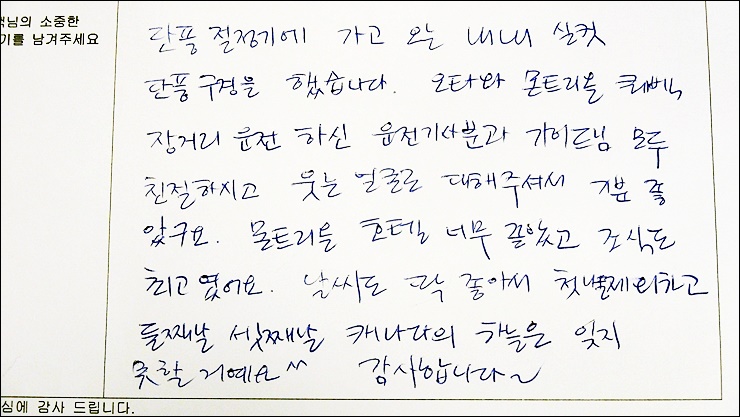 객님의 소중한
기를 남겨주세요
단풍 절정기에 가고 오는 내내 실컷
단풍구경을 했습니다. 오타와 몬트리올 퀘벡
장거리 운전 하신 운전기사분과 가이드님 모두
친절하시고 웃는 얼굴로 대해주셔서 기분 좋
았구요. 몬트리올 호텔 너무 좋았고 조식도
최고였어요. 날씨도 딱 좋아서 첫날제외하고
둘째날 셋째날 캐나다의 하늘은 잊지
못할 거예요^^ 감사합니다~
심에 감사 드립니다.